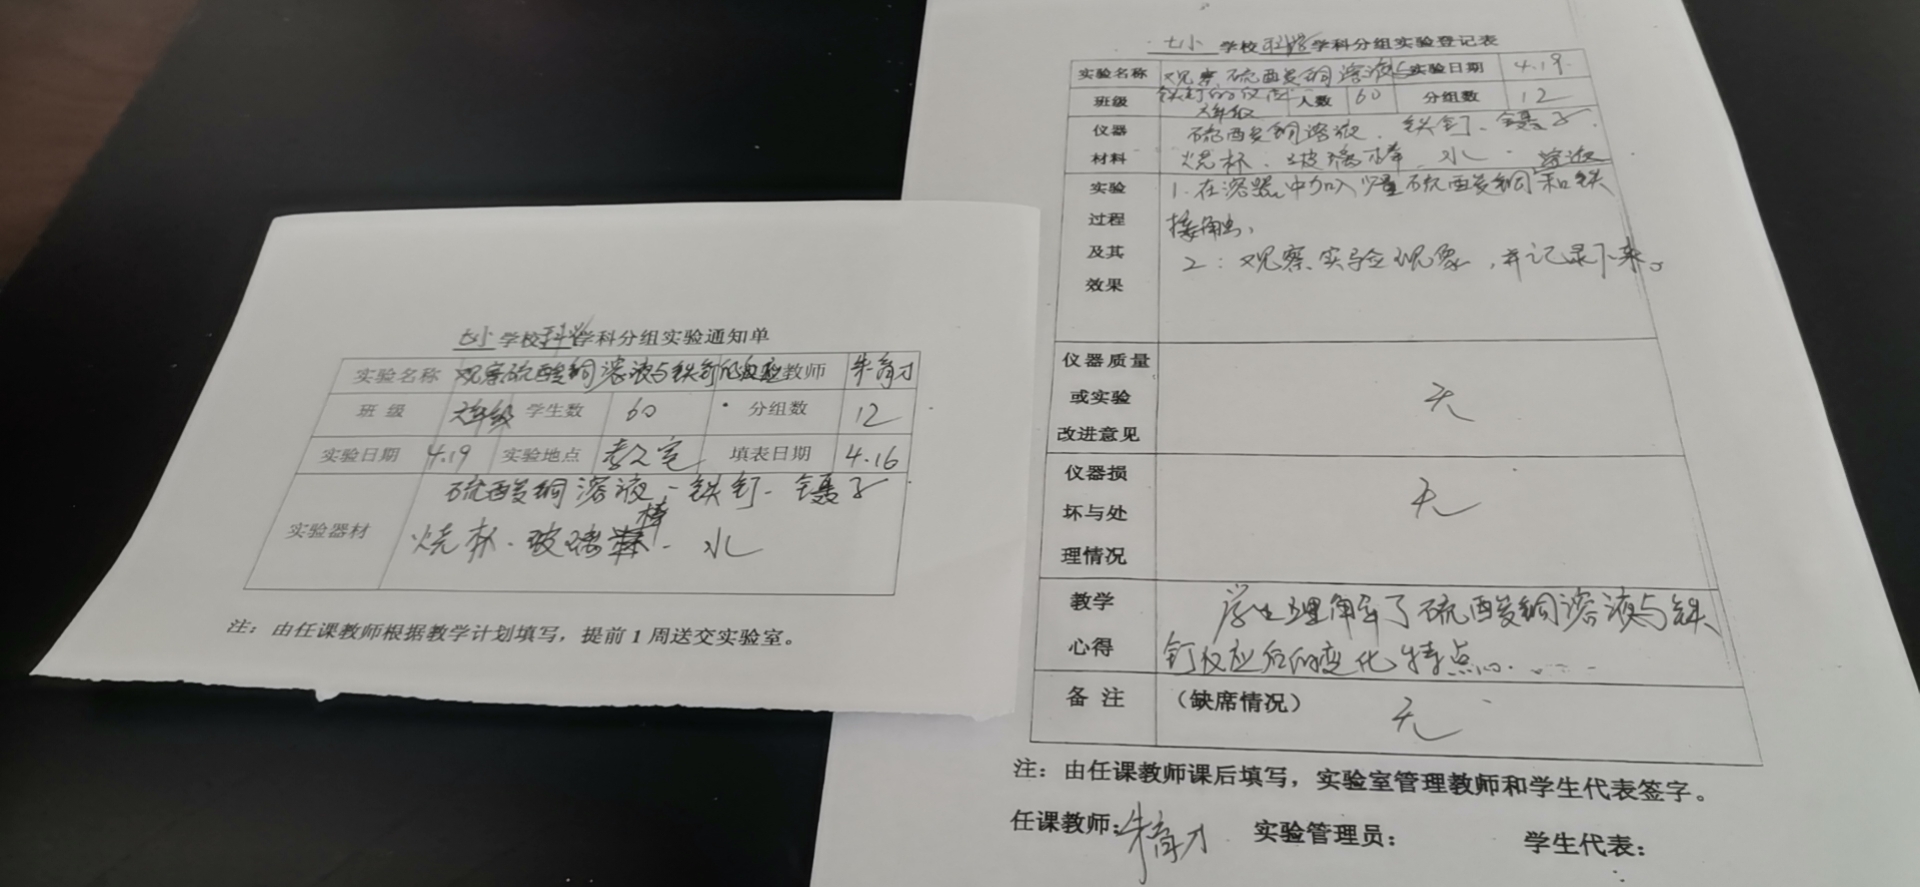 七小学校科学学科分组实验通知单
实验名称 观察硫酸铜溶液与铁钉的反应 教师 朱育才
班 级 六年级 学生数 60 分组数 12
实验日期 4.19 实验地点 填表日期 4.16
实验器材 硫酸铜溶液、铁钉、镊子
烧杯、玻璃棒、水
注：由任课教师根据教学计划填写，提前1周送交实验室。
七小 学校科学学科分组实验登记表
实验名称 观察硫酸铜溶液与 实验日期 4.19.
铁钉的反应
班级 六年级 人数 60 分组数 12
仪器 硫酸铜溶液、铁钉、镊子.
材料 烧杯、玻璃棒、水
溶液
实验 1.在容器中加入少量硫酸铜和铁
过程 接触、
及其 2：观察实验现象，并记录下来。
效果
仪器质量
或实验 无
改进意见
仪器损
坏与处 无
理情况
教学 学生理解了硫酸铜溶液与铁
心得 钉反应后的变化特点……
备 注 （缺席情况） 无
注：由任课教师课后填写，实验室管理教师和学生代表签字。
任课教师：朱育才 实验管理员： 学生代表：